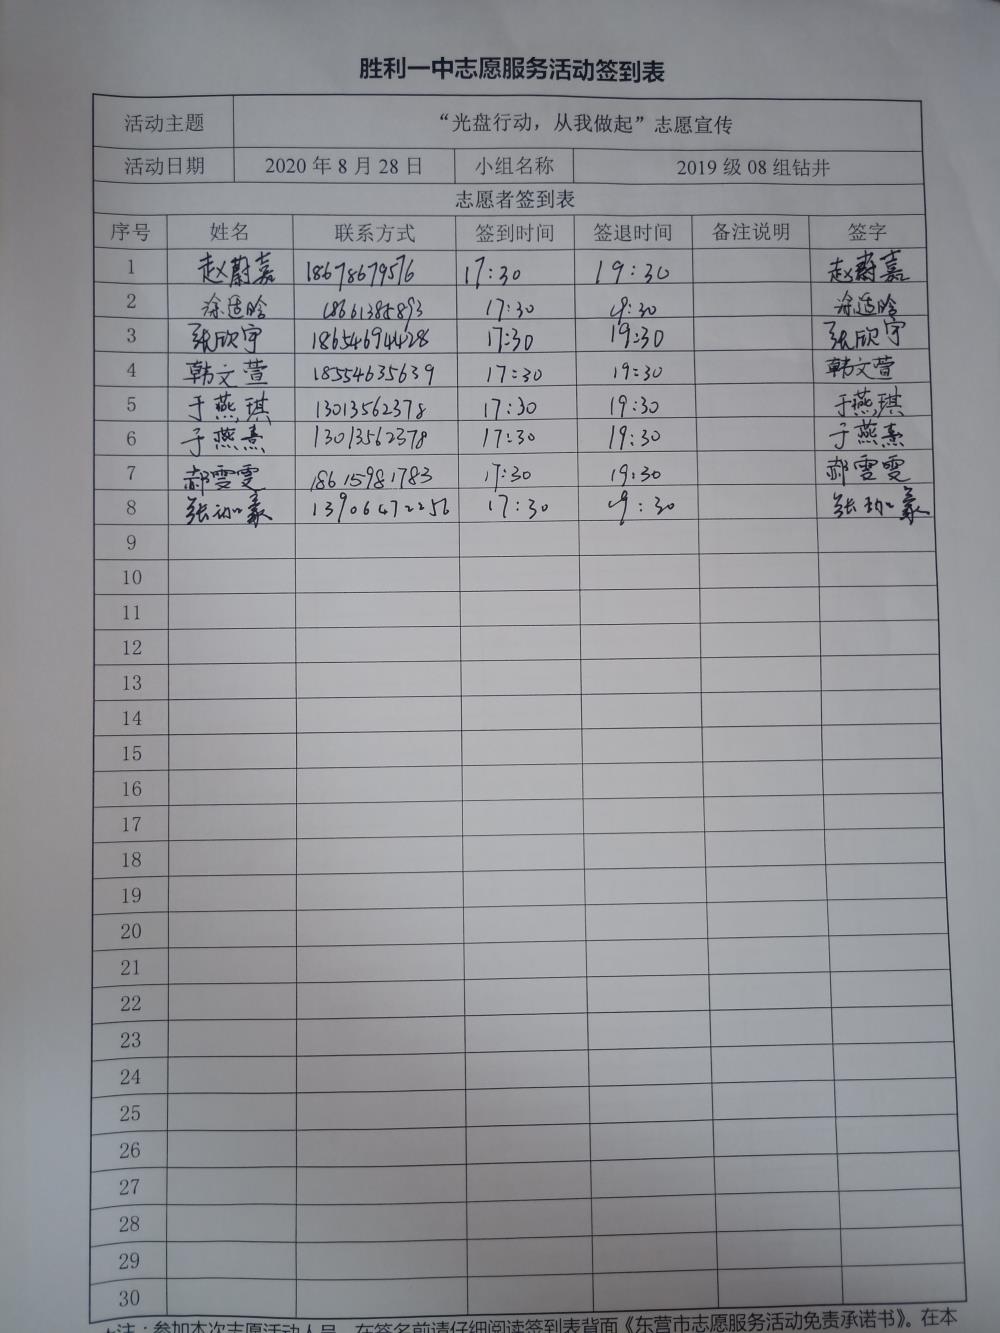 胜利一中志愿服务活动签到表
活动主题 “光盘行动，从我做起”志愿宣传
活动日期 2020 年 8 月 28 日 小组名称 2019 级 08 组钻井
志愿者签到表
序号 姓名 联系方式 签到时间 签退时间 备注说明 签字
1 赵蔚嘉 18678679576 17:30 19:30 赵蔚嘉
2 涂适晗 17:30 19:30 涂适晗
3 张欣宇 18654694428 17:30 19:30 张欣宇
4 韩文萱 18554635639 17:30 19:30 韩文萱
5 于燕琪 13013562378 17:30 19:30 于燕琪
6 于燕熹 13013562378 17:30 19:30 于燕熹
7 郝雯雯 18615981783 17:30 19:30 郝雯雯
8 张 13906472256 17:30 19:30 张
9
10
11
12
13
14
15
16
17
18
19
20
21
22
23
24
25
26
27
28
29
30
注：参加本次志愿活动人员，在签名前请仔细阅读签到表背面《东营市志愿服务活动免责承诺书》。在本